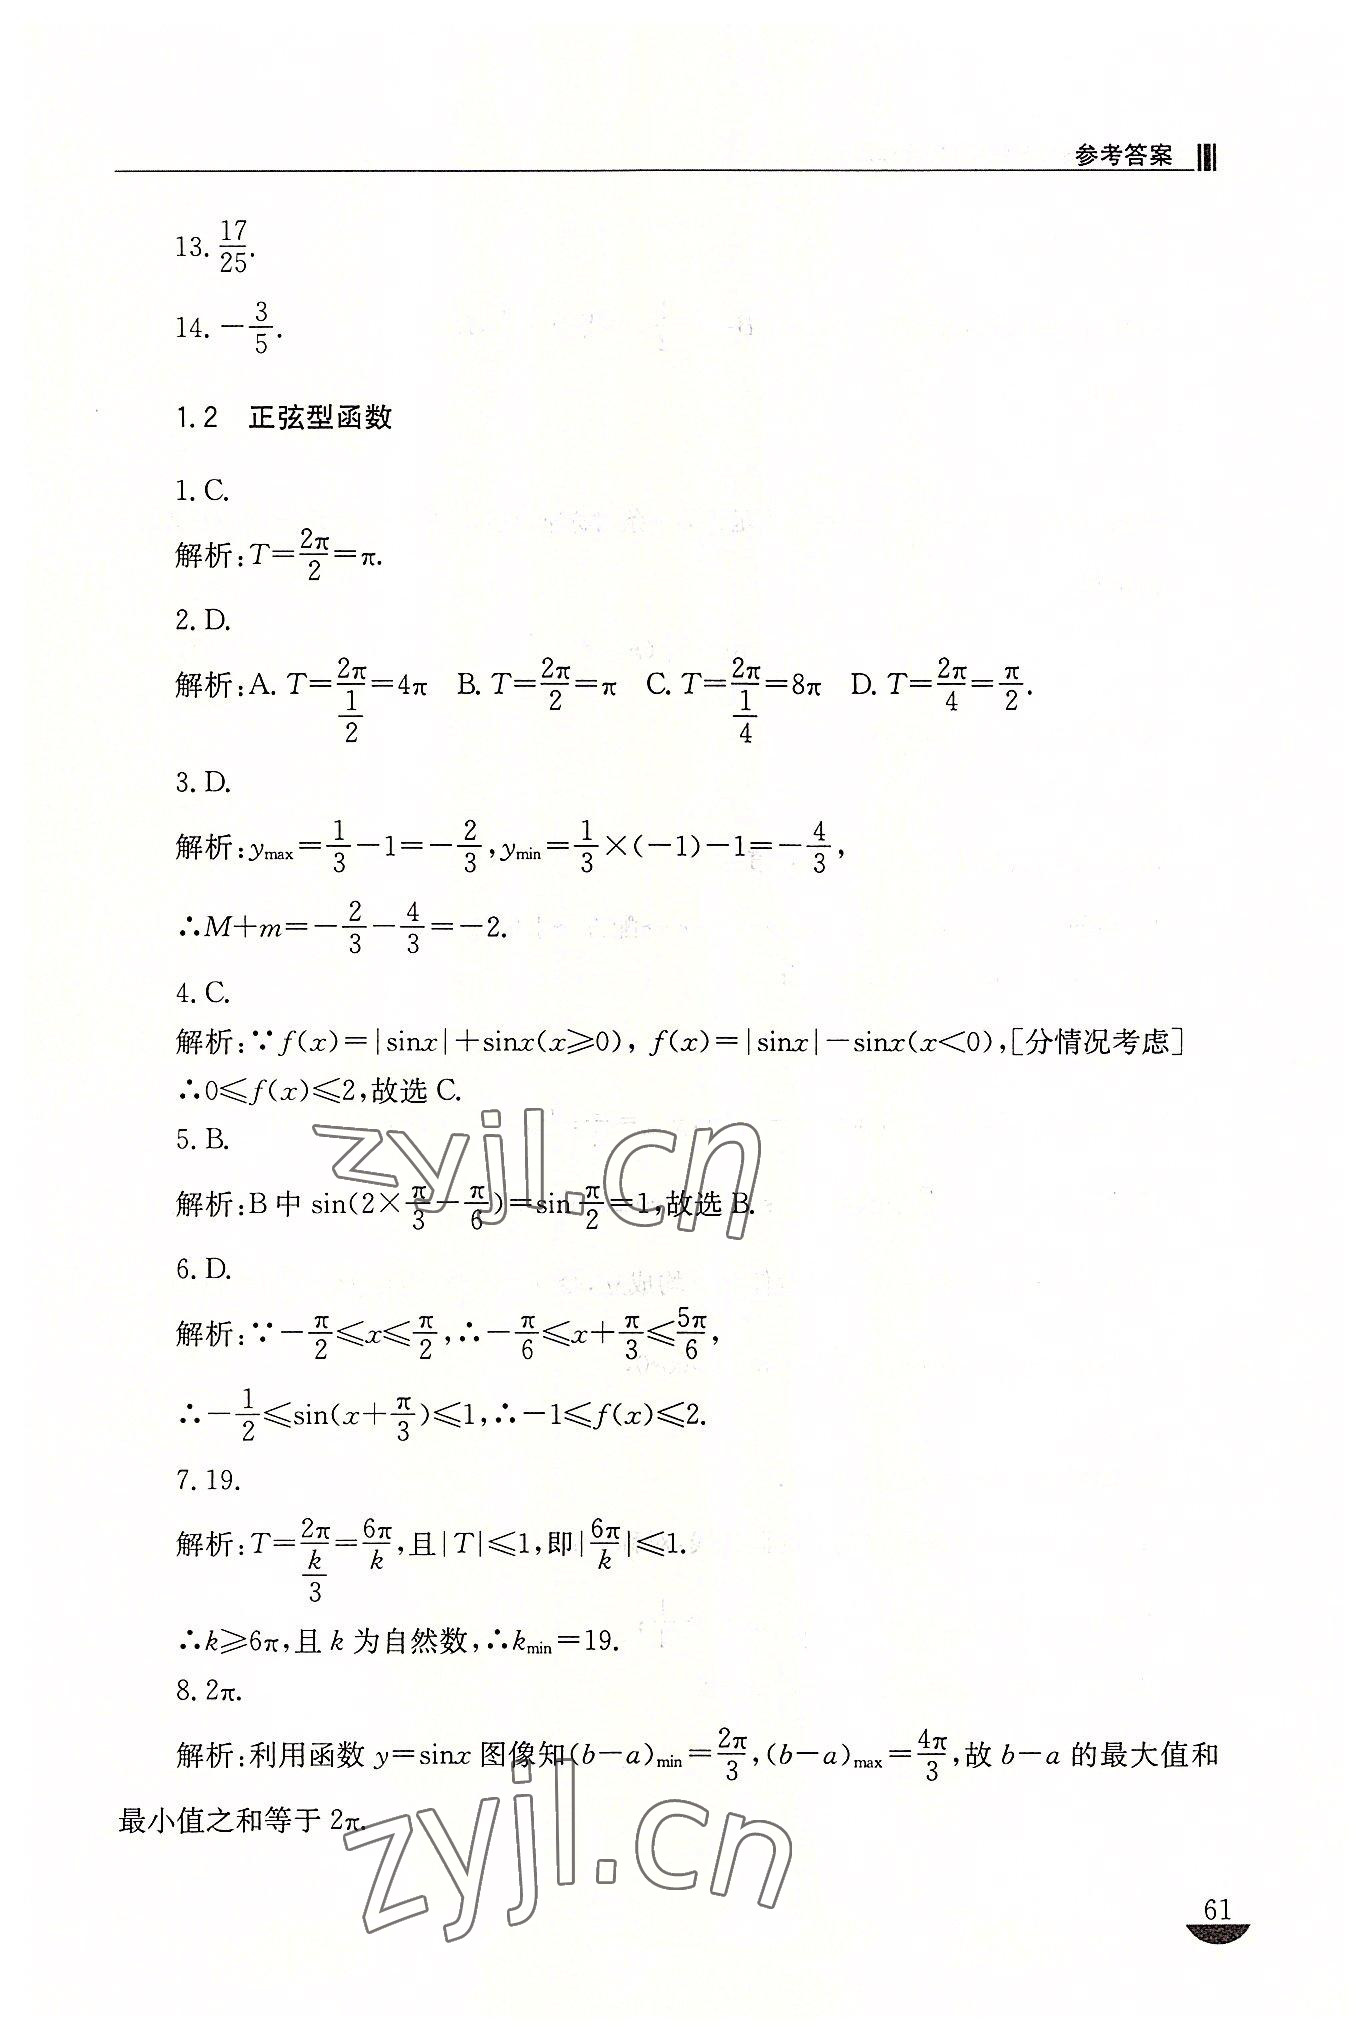 参考答案
13. 17/25.
14. -3/5.
1.2 正弦型函数
1. C.
解析:T=2π/2=π.
2. D.
解析:A. T=2π/(1/2)=4π B. T=2π/2=π C. T=2π/(1/4)=8π D. T=2π/4=π/2.
3. D.
解析:y_max=1/3-1=-2/3,y_min=1/3×(-1)-1=-4/3,
∴M+m=-2/3-4/3=-2.
4. C.
解析:∵f(x)=|sinx|+sinx(x⩾0), f(x)=|sinx|-sinx(x<0),[分情况考虑]
∴0⩽f(x)⩽2,故选 C.
5. B.
解析:B 中 sin(2×π/3-π/6)=sin π/2=1,故选 B.
6. D.
解析:∵-π/2⩽x⩽π/2,∴-π/6⩽x+π/3⩽5π/6,
∴-1/2⩽sin(x+π/3)⩽1,∴-1⩽f(x)⩽2.
7. 19.
解析:T=2π/(k/3)=6π/k,且|T|⩽1,即|6π/k|⩽1.
∴k⩾6π,且 k 为自然数,∴k_min=19.
8. 2π.
解析:利用函数 y=sinx 图像知(b-a)_min=2π/3,(b-a)_max=4π/3,故 b-a 的最大值和
最小值之和等于 2π.
61
zyjl.cn
zyjl.cn